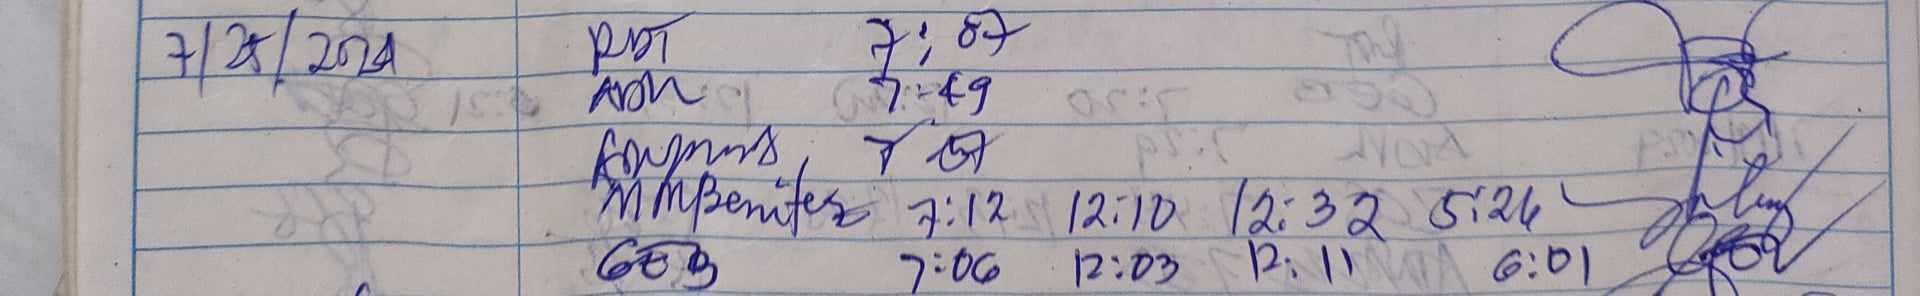 7/25/2024 RDT 7:07
ADN 7:49
7 07
MMBenitez 7:12 12:10 12:32 5:26
GEB 7:06 12:03 12:11 6:01